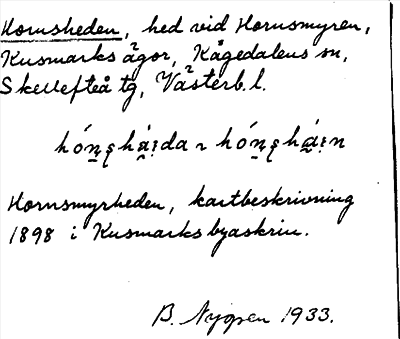 Hornsheden, hed vid Hornsmyren,
Kusmarks ägor, Kågedalens sn,
Skellefteå tg, Västerb. l.
Hornsmyrheden, kartbeskrivning
1898 i Kusmarks byaskrin.
B. Nygren 1933.